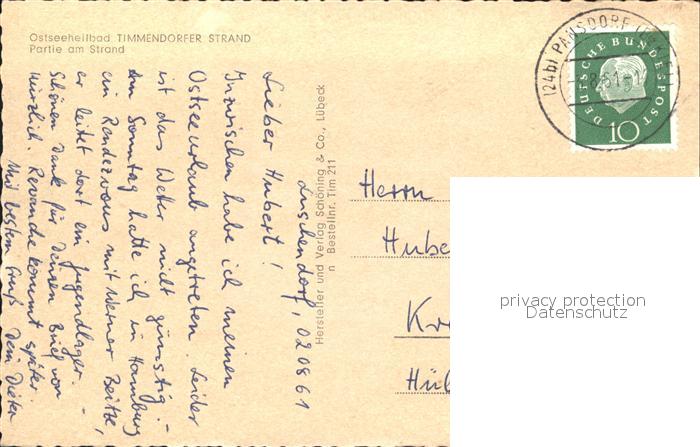 Ostseeheilbad TIMMENDORFER STRAND
Partie am Strand
(24b) PANSDORF
8.61-
DEUTSCHE BUNDESPOST
10
Hersteller und Verlag Schöning & Co., Lübeck
Bestellnr. Tim 211
Luschendorf, 020861
Lieber Hubert!
Inzwischen habe ich meinen
Ostseeurlaub angetreten. Leider
ist das Wetter nicht günstig. -
Am Sonntag hatte ich in Hamburg
ein Rendezvous mit Werner Beitze,
er leitet dort ein Jugendlager. -
Schönen Dank für Deinen Brief von
neulich. Revanche kommt später.
Mit bestem Gruß Dein Dieter
Herrn
Hube
Kr
Hül
privacy protection
Datenschutz